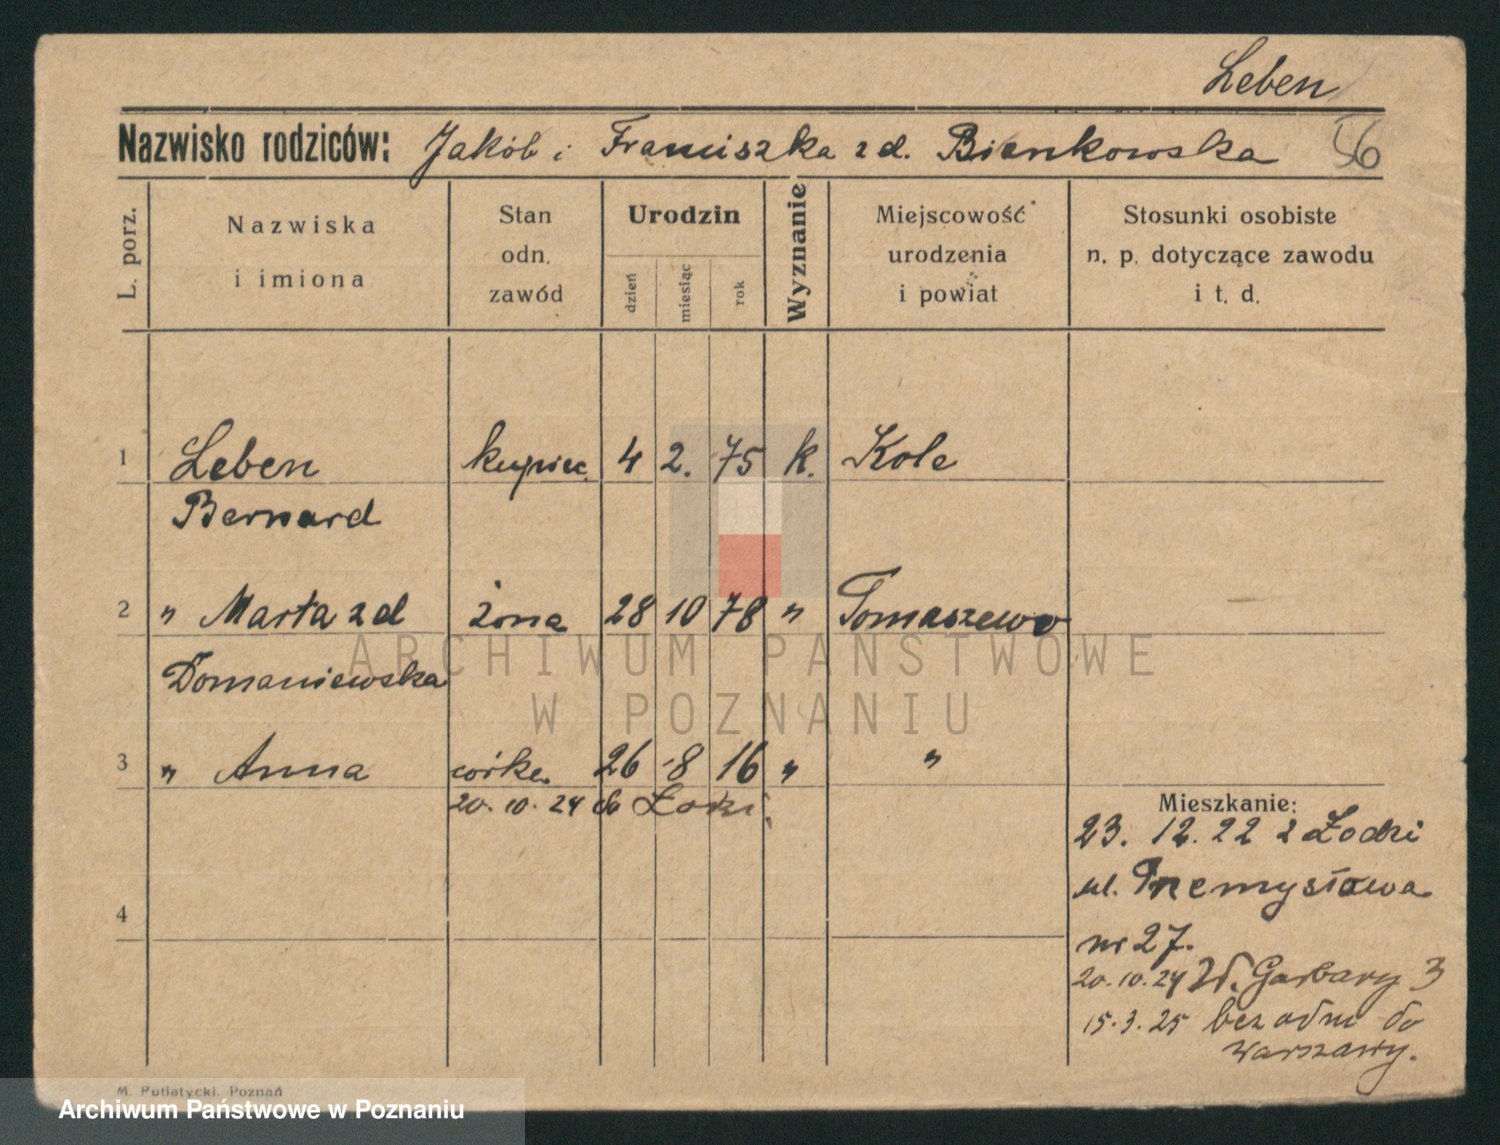 Leben
Nazwisko rodziców: Jakób i Franciszka zd. Bienkowska
56
L. porz.
Nazwiska
i imiona
Stan
odn.
zawód
Urodzin
dzień
miesiąc
rok
Wyznanie
Miejscowość
urodzenia
i powiat
Stosunki osobiste
n. p. dotyczące zawodu
i t. d.
1 Leben kupiec 4 2. 75 k. Kole
Bernard
2 " Marta zd żona 28 10 78 " Tomaszewo
Domaniewska
3 " Anna córka 26 8 16 " "
20. 10. 24 do Łodzi
4
Mieszkanie:
23. 12. 22 z Łodzi
ul. Przemysłowa
nr 27.
20. 10. 24 W. Garbary 3
15. 3. 25 bez odm do
Warszawy.
M. Putiatycki, Poznań
ARCHIWUM PAŃSTWOWE
W POZNANIU
Archiwum Państwowe w Poznaniu